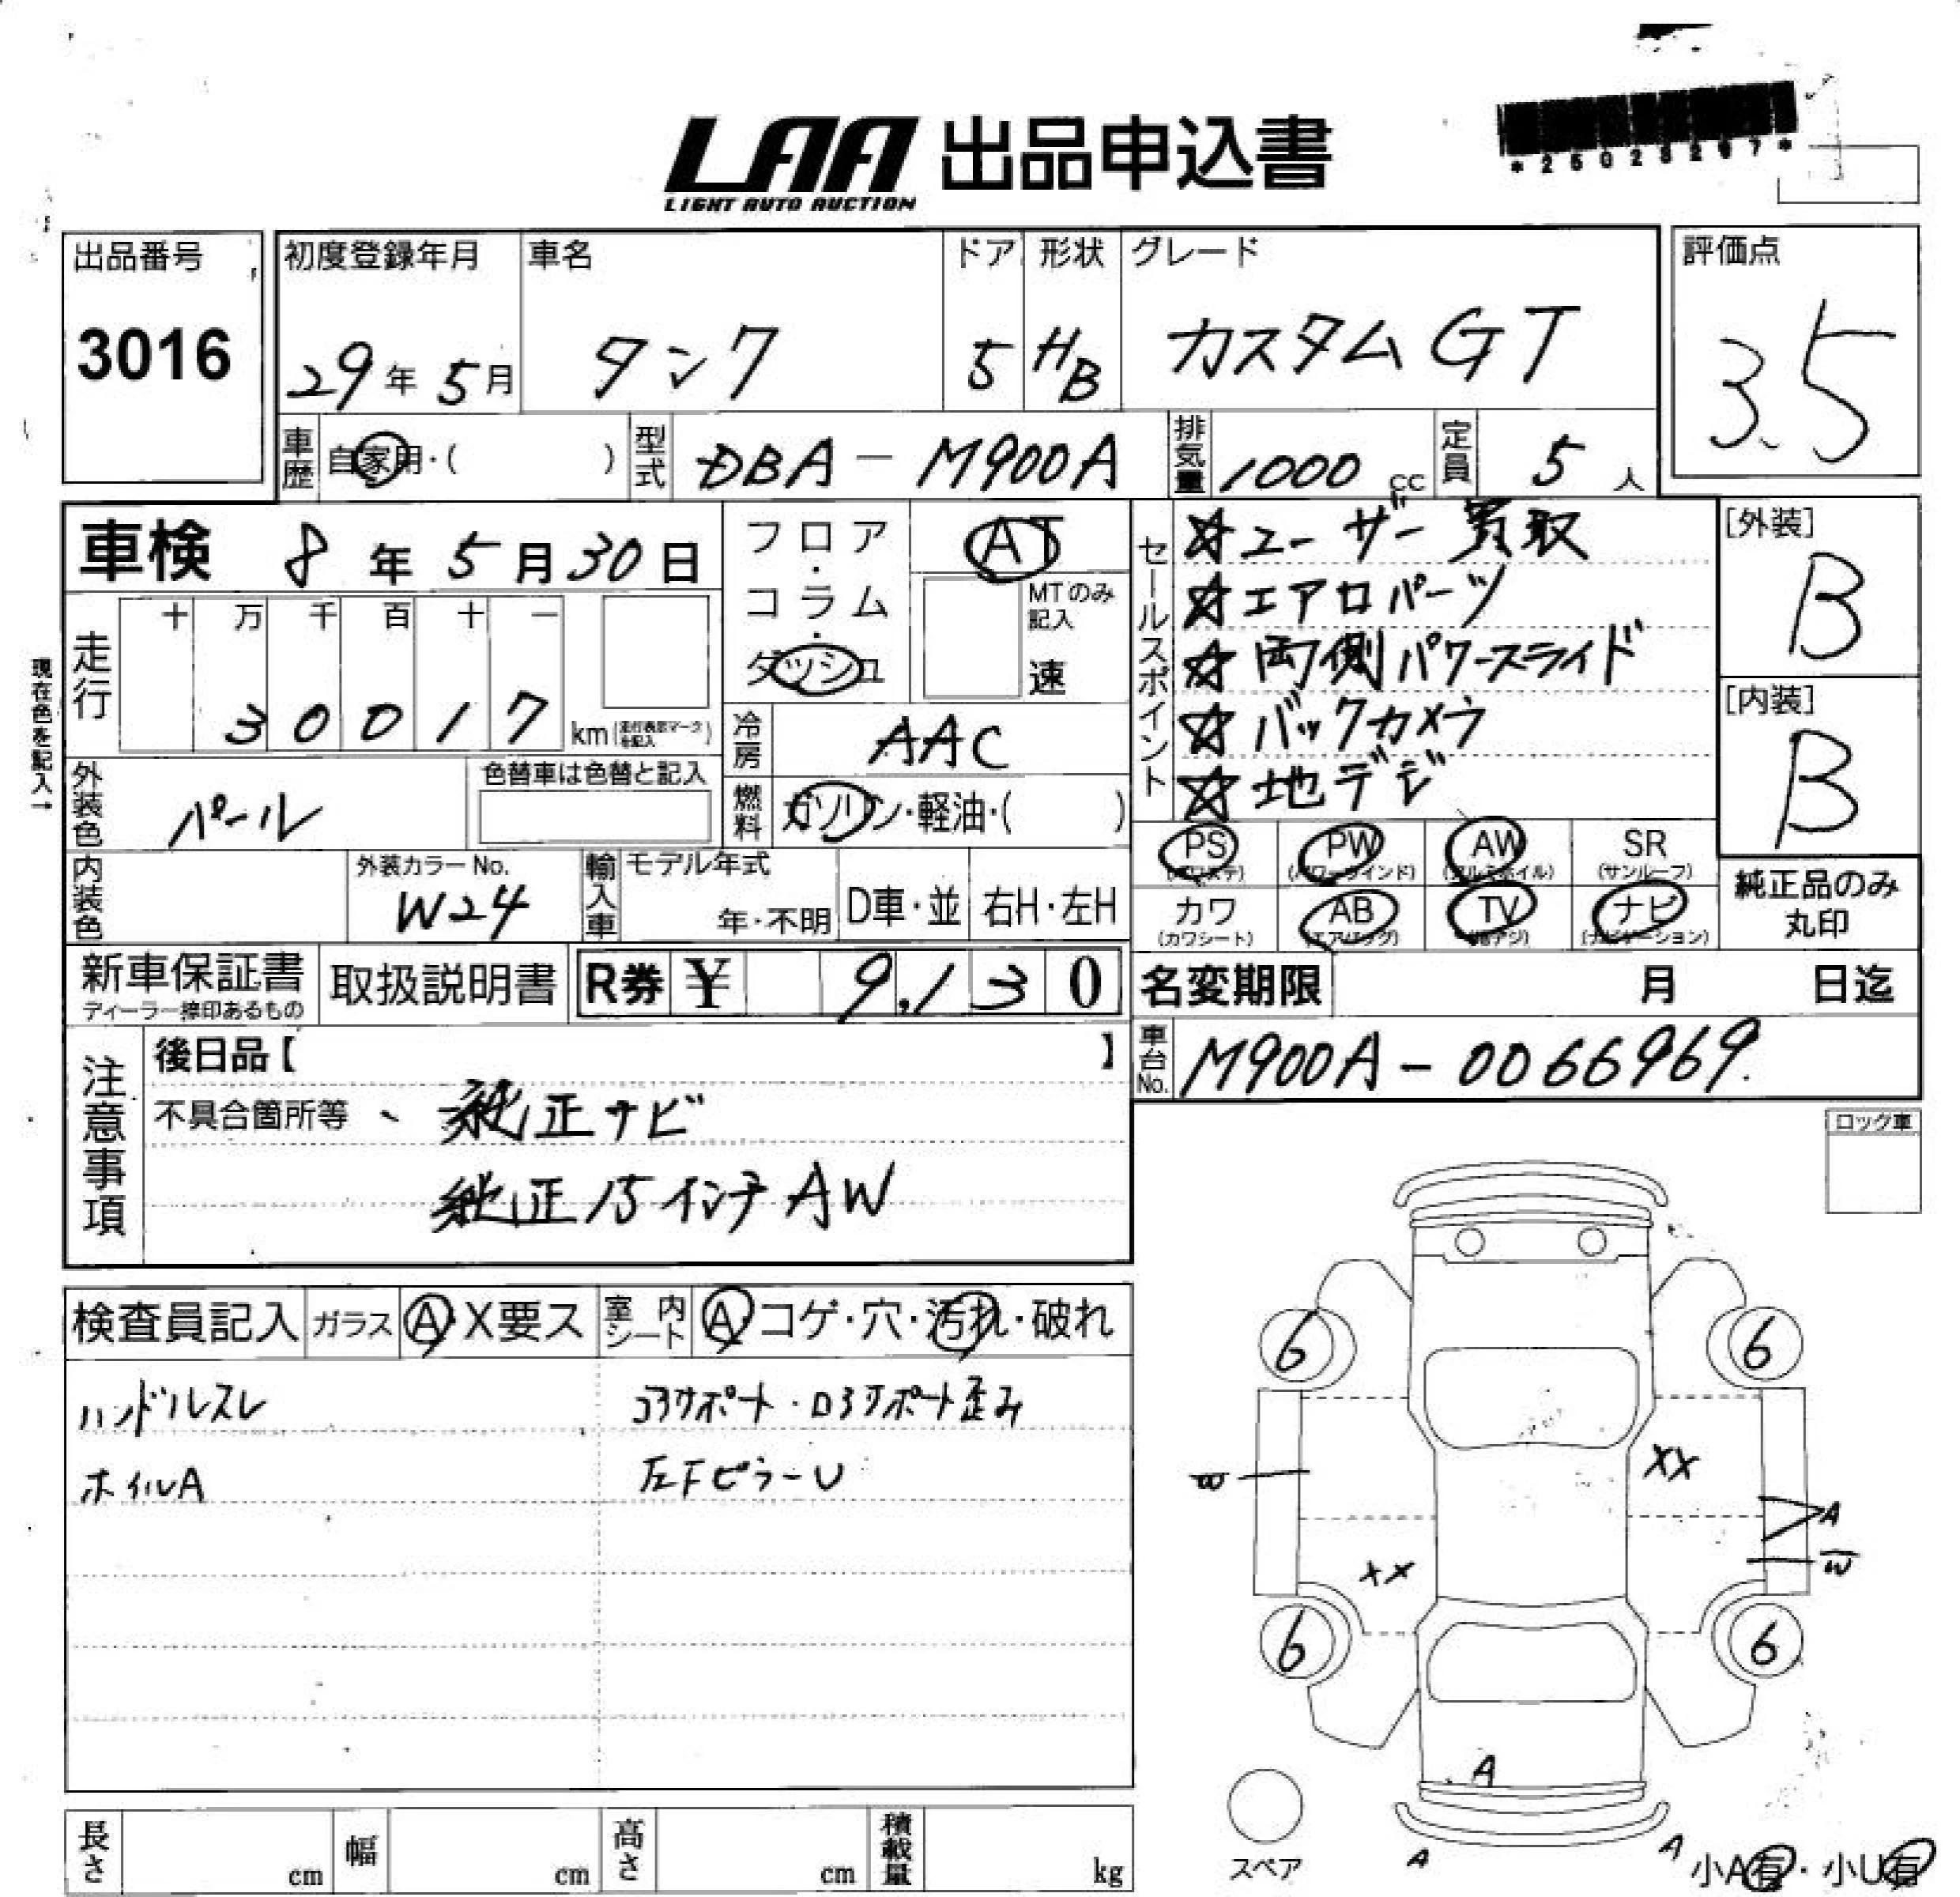 LAA 出品申込書
LIGHT AUTO AUCTION
出品番号
3016
初度登録年月
29年5月
車名
タンク
ドア
5
形状
HB
グレード
カスタムGT
評価点
3.5
車歴 自家用・( )
型式 DBA-M900A
排気量 1000 cc
定員 5人
車検 8年5月30日
フロア・コラム・ダッシュ
AT
MTのみ記入
速
セールスポイント
☆ユーザー買取
☆エアロパーツ
☆両側パワースライド
☆バックカメラ
☆地デジ
[外装]
B
[内装]
B
現在色を記入→
走行
十 万 千 百 十 一
3 0 0 1 7 km (走行表示マークを記入)
冷房 AAC
燃料 ガソリン・軽油・( )
外装色 パール
色替車は色替と記入
内装色
外装カラーNo.
W24
輸入車
モデル年式
年・不明
D車・並
右H・左H
PS (パワステ)
PW (パワーウインド)
AW (アルミホイル)
SR (サンルーフ)
カワ (カワシート)
AB (エアバッグ)
TV (地デジ)
ナビ (ナビゲーション)
純正品のみ丸印
新車保証書
ディーラー捺印あるもの
取扱説明書
R券 ¥ 9,130
名変期限 月 日迄
車台No. M900A-0066969
注意事項
後日品【 】
不具合箇所等、純正ナビ
純正15インチAW
ロック車
検査員記入
ガラス A・X要ス
室内シート A・コゲ・穴・汚れ・破れ
ハンドルスレ
コアサポート・ロアサポート歪み
ホイルA
左FピラーU
6
6
XX
W
A
W
XX
6
6
A
スペア
A
A
小A有・小U有
長さ cm
幅 cm
高さ cm
積載量 kg